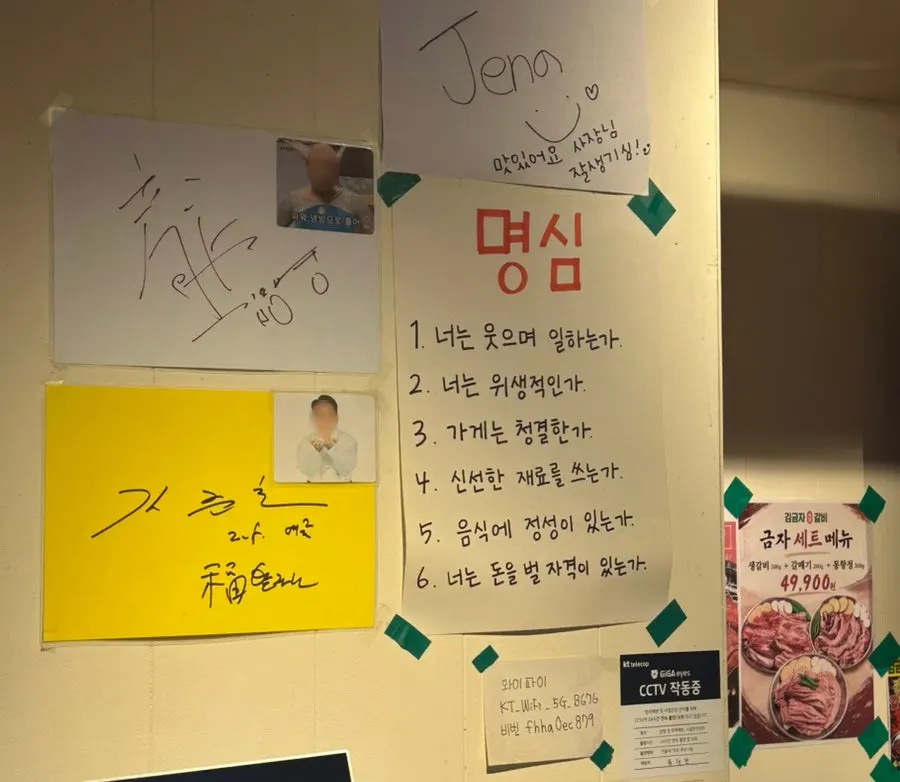 Jena
맛있어요 사장님
잘생기심!
파워 냉방으로 틀어
福
명심
1. 너는 웃으며 일하는가.
2. 너는 위생적인가.
3. 가게는 청결한가.
4. 신선한 재료를 쓰는가.
5. 음식에 정성이 있는가.
6. 너는 돈을 벌 자격이 있는가.
와이파이
KT_WiFi_5G_8676
비번 fhha0ec879
kt telecop
GiGA eyes
CCTV 작동중
김금자 갈비
금자 세트 메뉴
생갈비 + 갈매기 + 통항정
49,900원